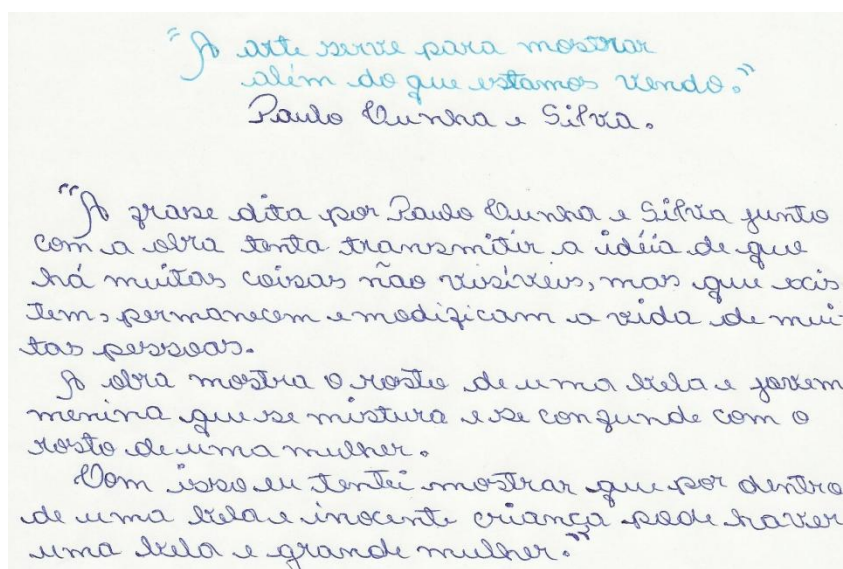 "A arte serve para mostrar
além do que estamos vendo."
Paulo Cunha e Silva.
"A frase dita por Paulo Cunha e Silvia junto
com a obra tenta transmitir a idéia de que
há muitas coisas não visíveis, mas que exis
tem, permanecem e modificam a vida de mui-
tas pessoas.
A obra mostra o rosto de uma bela e jovem
menina que se mistura e se confunde com o
rosto de uma mulher.
Com isso eu tentei mostrar que por dentro
de uma bela e inocente criança pode haver
uma bela e grande mulher."